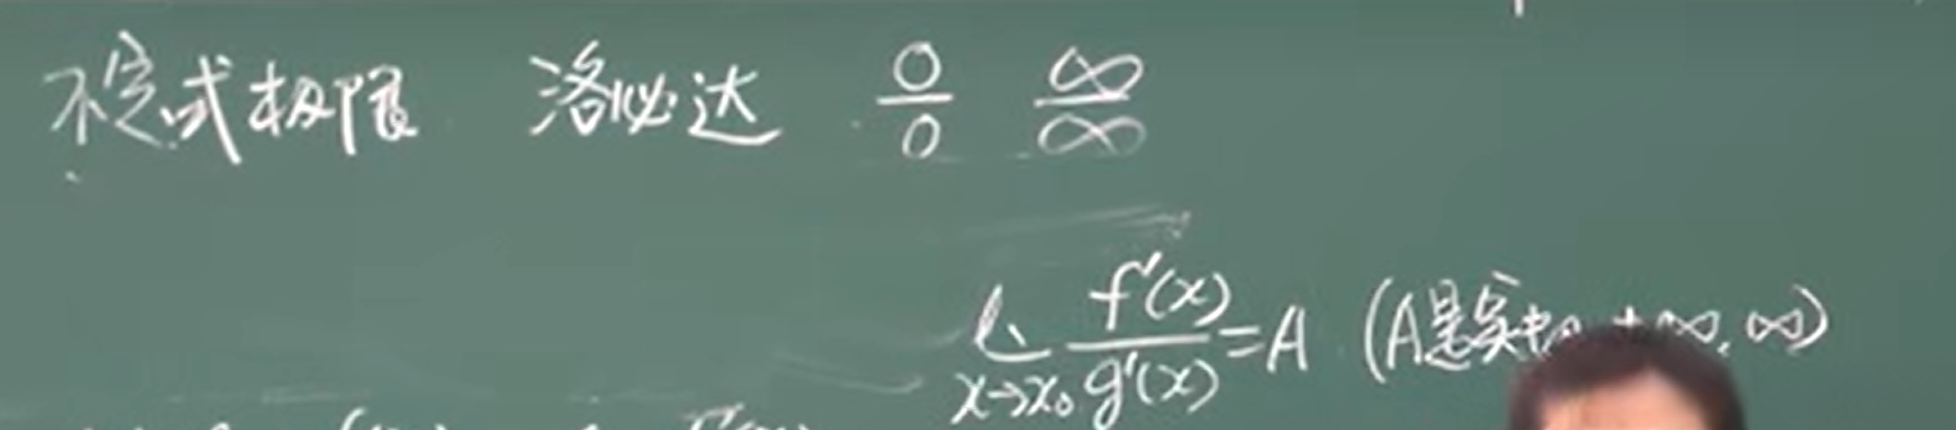 不定式极限 洛必达 0/0 ∞/∞
lim x→x₀ f'(x)/g'(x) = A (A是实 ∞, ∞)